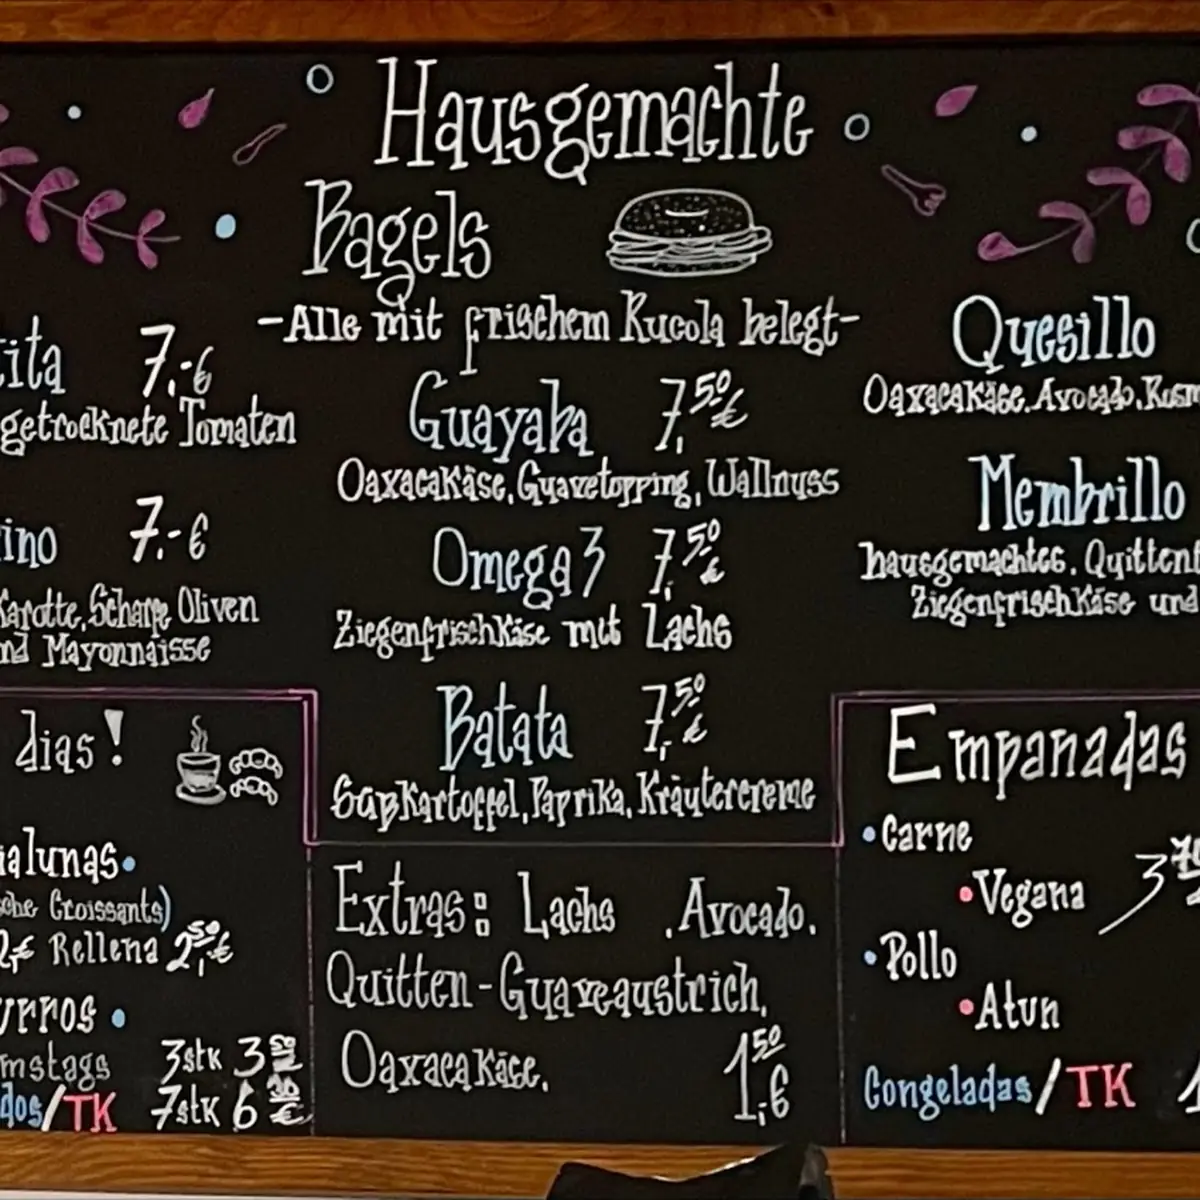 Hausgemachte
Bagels
-Alle mit frischem Rucola belegt-
7,-€
getrocknete Tomaten
7,-€
Karotte, Scharfe Oliven
Mayonnaisse
Guayaba 7,50€
Oaxacakäse, Guavetopping, Wallnuss
Omega 3 7,50€
Ziegenfrischkäse mit Lachs
Batata 7,50€
Süßkartoffel, Paprika, Kräutercreme
Quesillo
Oaxacakäse, Avocado,
Membrillo
hausgemachtes,
Ziegenfrischkäse und
dias!
Croissants)
2,€ Rellena 2,50€
3stk 3
/TK 7stk 6
Extras: Lachs , Avocado,
Quitten-Guaveaustrich,
Oaxacakäse,
1,50€
Empanadas
•Carne
•Vegana 3
•Pollo
•Atun
Congeladas/TK